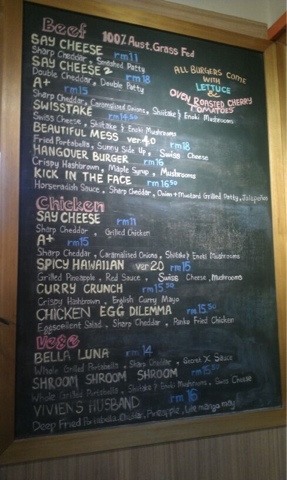 Beef 100% Aust. Grass Fed
SAY CHEESE rm11
Sharp Cheddar, Smashed Patty
SAY CHEESE 2 rm18
Double Cheddar, Double Patty
ALL BURGERS COME
WITH
LETTUCE
&
OVEN ROASTED CHERRY
TOMATOES
A+ rm15
Sharp Cheddar, Caramelised Onions, Shiitake & Enoki Mushrooms
SWISSTAKE rm14.50
Swiss Cheese, Shiitake & Enoki Mushrooms
BEAUTIFUL MESS ver 4.0 rm18
Fried Portabella, Sunny Side Up, Swiss Cheese
HANGOVER BURGER rm16
Crispy Hashbrown, Maple Syrup, Mushrooms
KICK IN THE FACE rm16.50
Horseradish Sauce, Sharp Cheddar, Onion + Mustard Grilled Patty, Jalapeños
Chicken
SAY CHEESE rm11
Sharp Cheddar, Grilled Chicken
A+ rm15
Sharp Cheddar, Caramelised Onions, Shiitake & Enoki Mushrooms
SPICY HAWAIIAN ver 2.0 rm15
Grilled Pineapple, Red Sauce, Swiss Cheese, Mushrooms
CURRY CRUNCH rm15.50
Crispy Hashbrown, English Curry Mayo
CHICKEN EGG DILEMMA rm15.50
Eggscellent Salad, Sharp Cheddar, Panko Fried Chicken
Vege
BELLA LUNA rm 14
Whole Grilled Portabella, Sharp Cheddar, Secret X Sauce
SHROOM SHROOM SHROOM rm15.50
Whole Grilled Portabella, Shiitake & Enoki Mushrooms, Swiss Cheese
VIVIEN'S HUSBAND rm 16
Deep Fried Portabella, Pineapple,